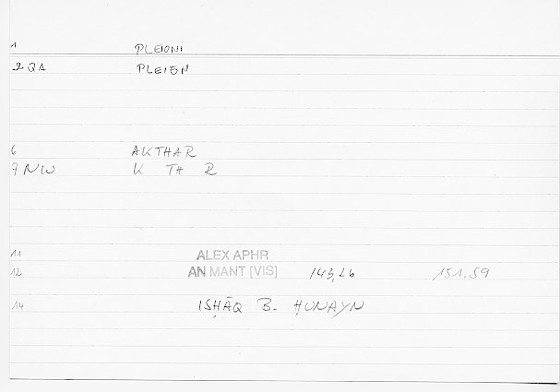 1 PLEIONI
2 QA PLEION
6 AKTHAR
7 NW K TH R
11 ALEX APHR
12 AN MANT [VIS] 143,26 151,59
14 ISḤĀQ B. ḤUNAYN